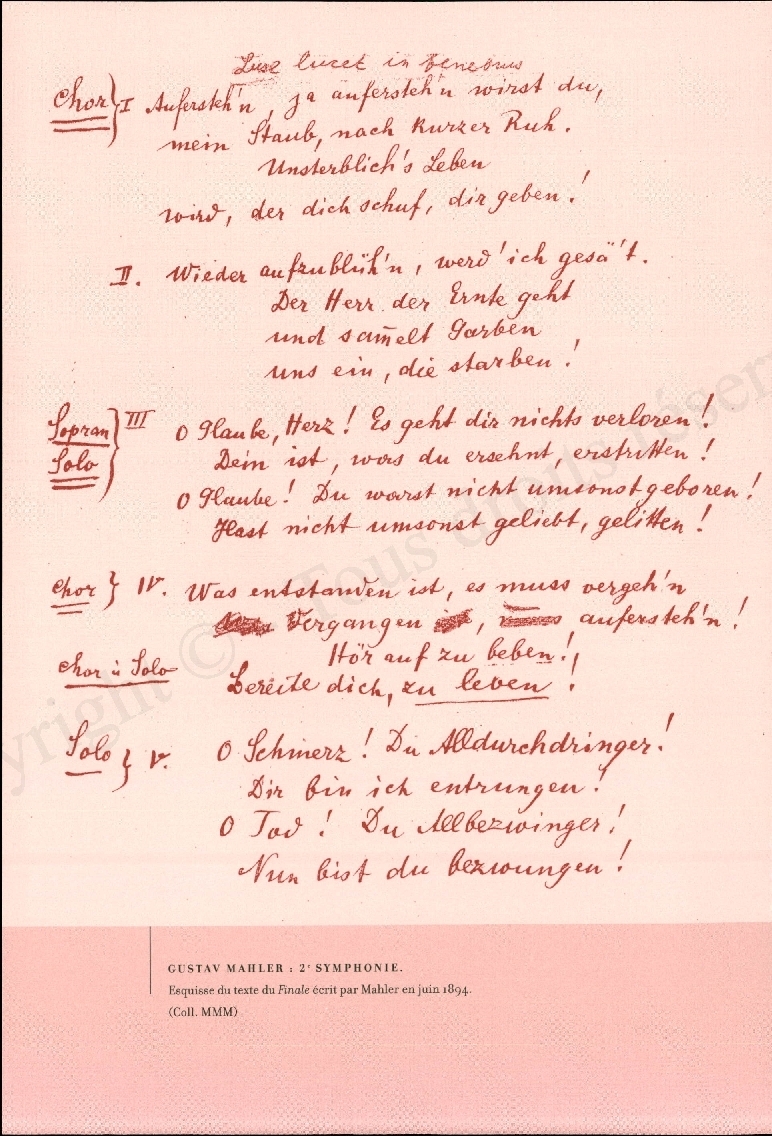 lucet in
Chor } I Aufersteh'n, ja aufersteh'n wirst du,
mein Staub, nach kurzer Ruh.
Unsterblich's Leben
wird, der dich schuf, dir geben!
II. Wieder aufzublüh'n, werd' ich gesä't.
Der Herr der Ernte geht
und sam̅elt Garben
uns ein, die starben!
Sopran Solo } III O Glaube, Herz! Es geht dir nichts verloren!
Dein ist, was du ersehnt, erstritten!
O Glaube! Du warst nicht umsonst geboren!
Hast nicht umsonst geliebt, gelitten!
Chor } IV. Was entstanden ist, es muss vergeh'n
Vergangen , aufersteh'n!
Hör auf zu beben!
Chor u Solo Bereite dich, zu leben!
Solo } V. O Schmerz! Du Alldurchdringer!
Dir bin ich entrungen!
O Tod! Du Allbezwinger!
Nun bist du bezwungen!
GUSTAV MAHLER : 2e SYMPHONIE.
Esquisse du texte du Finale écrit par Mahler en juin 1894.
(Coll. MMM)
Copyright © Tous droits réser